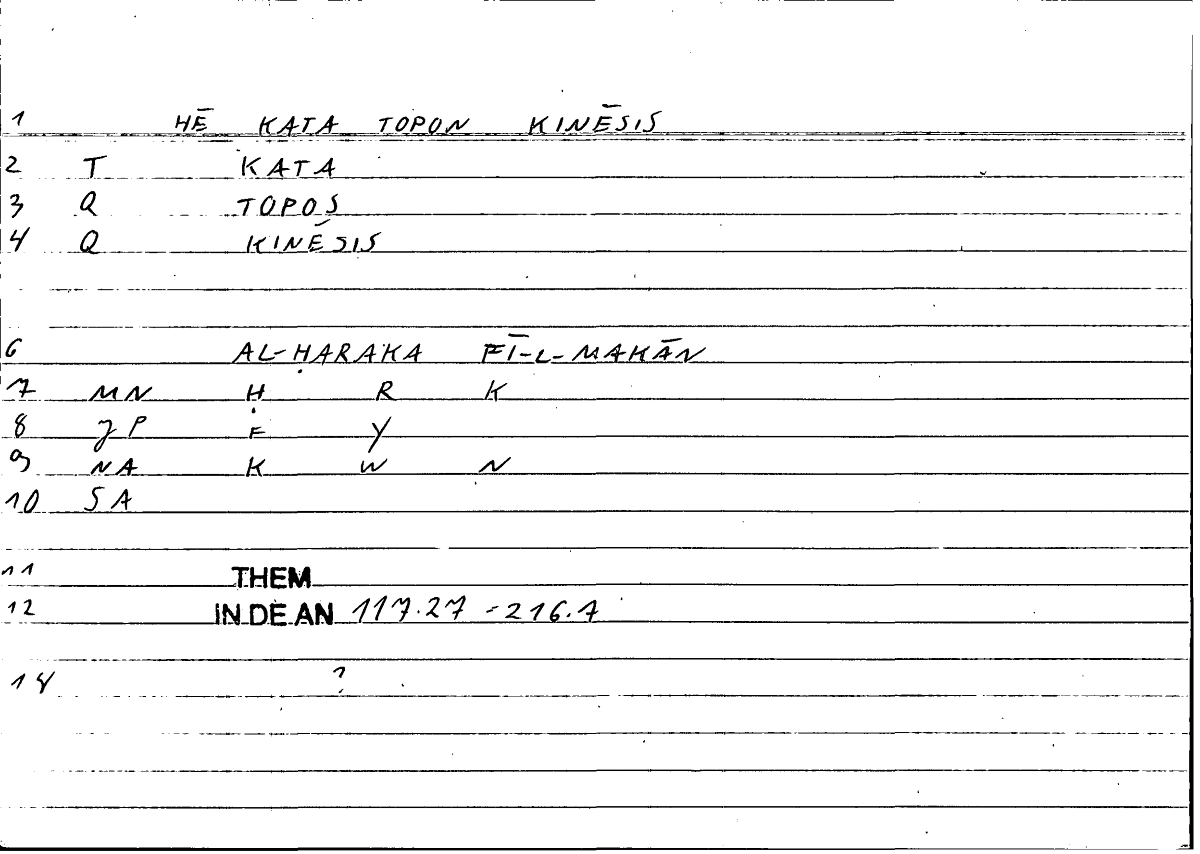 1 HĒ KATA TOPON KINĒSIS
2 T KATA
3 Q TOPOS
4 Q KINĒSIS
6 AL-ḤARAKA FĪ-L-MAKĀN
7 MN Ḥ R K
8 P F Y
9 NA K W N
10 SA
11 THEM
12 IN DE AN 117.27 - 216.7
14 ?